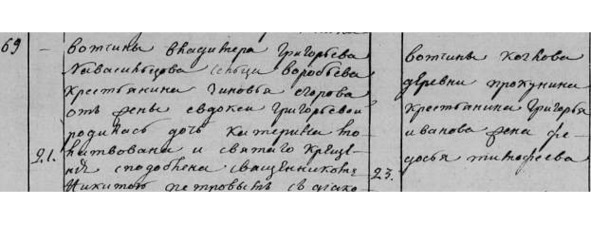 69 —
вотчины владимера григорьева
Новасильцова сельца воробьева
крестьянина зиновья егорова
отъ жены евдокеи григорьевой
родилась дочь катерина мо-
литвована и святаго креще-
21.
нія сподоблена священникомъ
Никитою петровымъ
вотчины
деревни прокунина
крестьянина григорья
иванова жена фе-
досья тимофеева
23.